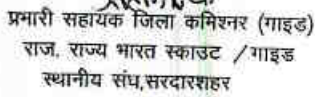 प्रभारी सहायक जिला कमिश्नर (गाइड)
राज. राज्य भारत स्काउट /गाइड
स्थानीय संघ,सरदारशहर